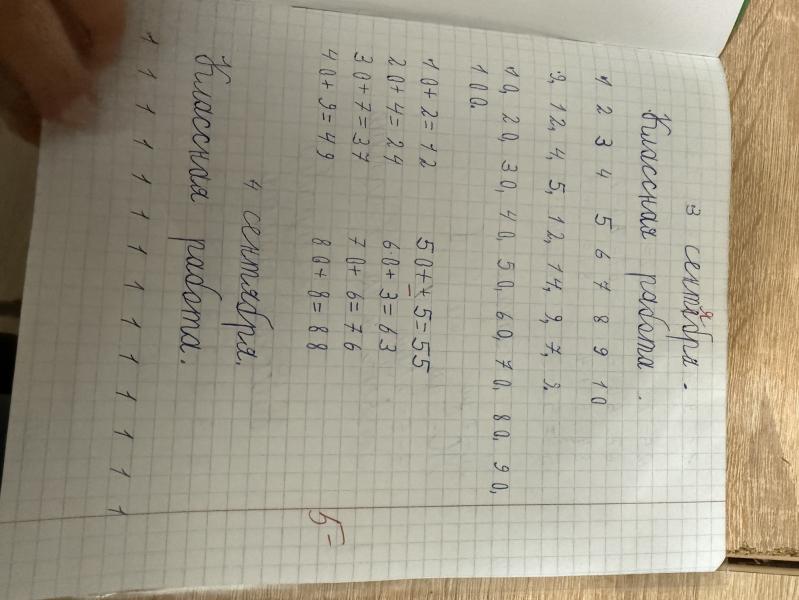 3 сентября.
Классная работа.
1 2 3 4 5 6 7 8 9 10
9, 12, 4, 5, 12, 14, 9, 7, 3.
10, 20, 30, 40, 50, 60, 70, 80, 90,
100.
10+2=12 50++5=55
20+4=24 60+3=63
30+7=37 70+6=76
40+9=49 80+8=88
5-
4 сентября.
Классная работа.
1 1 1 1 1 1 1 1 1 1 1 1 1 1